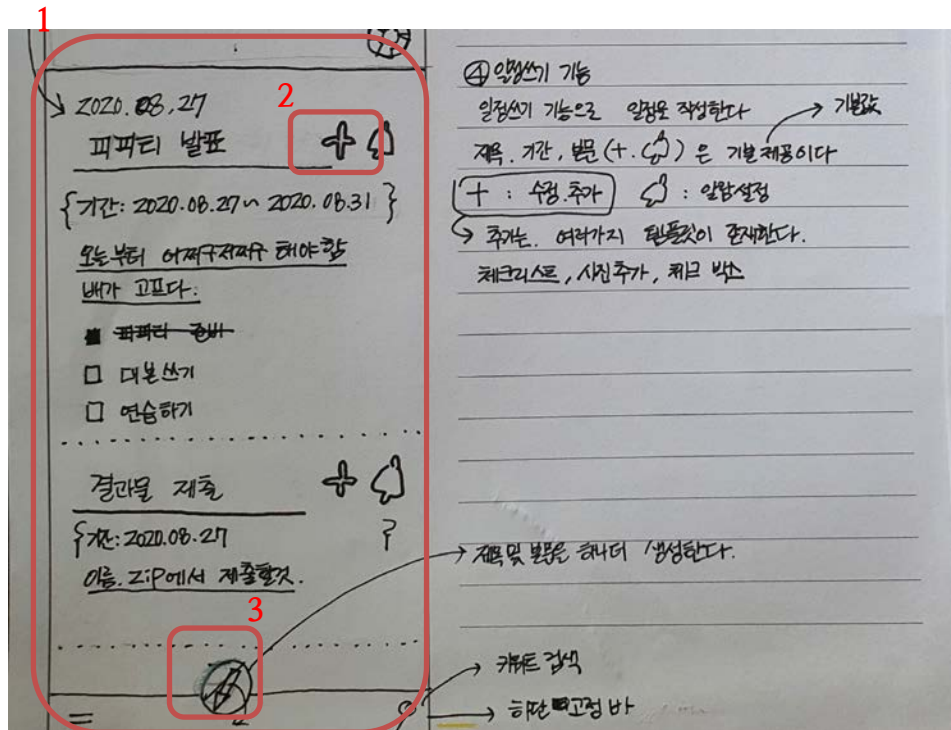 1
2020.08.27
2
피파티 발표
{기간: 2020.08.27~2020.08.31}
오늘부터 어쩌구저쩌구 해야함
배가 고프다.
피피티 준비
대본쓰기
연습하기
결과물 제출
{기간: 2020.08.27 }
이름.zip에서 제출할것.
3
④ 일정쓰기 기능
일정쓰기 기능으로 일정을 작성한다 → 기본값
제목. 기간, 본문(+. ) 은 기본제공이다
+ : 수정.추가 : 알람설정
추가는. 여러가지 템플릿이 존재한다.
체크리스트, 사진추가, 체크 박스
→ 제목및 본문을 하나더 생성한다.
→ 키워드 검색
→ 하단 고정 바